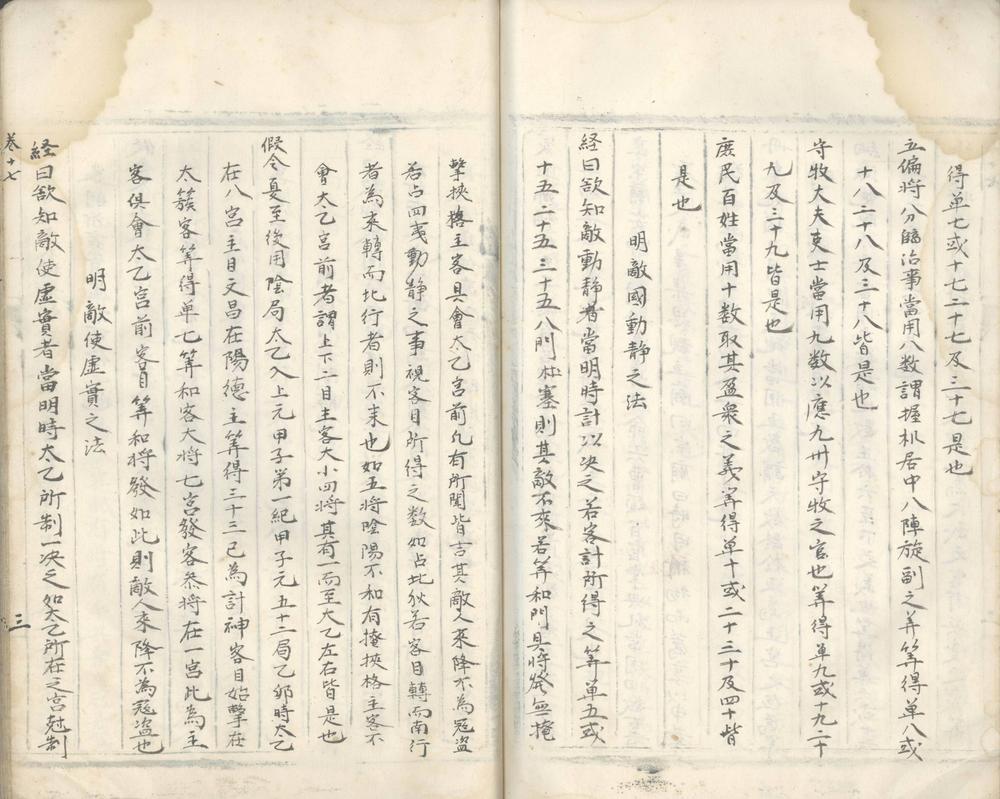 得单七或十七二十七及三十七是也
五偏將分臨治事當用八数謂握机居中八陣旋副之弄筭得单八或
十八二十八及三十八皆是也
守牧大夫吏士當用九数以應九州守牧之官也筭得单九或十九二十
九及三十九皆是也
庶民百姓當用十数取其盈衆之義筭得单十或二十三十及四十皆
是也
明敵國動静之法
経曰欲知敵動静者當明時計以决之若客計所得之筭单五或
十五二十五三十五八門杜塞則其敵不來若筭和門具將發無掩
擊挾格主客具會太乙宮前凢有所聞皆吉其敵人來降不為冦盗
若占四夷動静之事視客目所得之数如占北狄若客目轉而南行
者為來轉而北行者則不来也如五將陰陽不和有掩挾格主客不
會太乙宮前者謂上下二目主客大小四將其有一而至大乙左右皆是也
假令夏至後用陰局太乙入上元甲子第一紀甲子元五十二局乙卯時太乙
在八宮主目文昌在陽德主筭得三十三已為計神客目始擊在
太簇客筭得单七筭和客大將七宮發客叅將在一宮此為主
客俱會太乙宮前客目筭和將發如此則敵人來降不為冦盗也
明敵使虚實之法
経曰欲知敵使虚實者當明時太乙所制一决之如太乙所在之宮尅制
巻十七
三